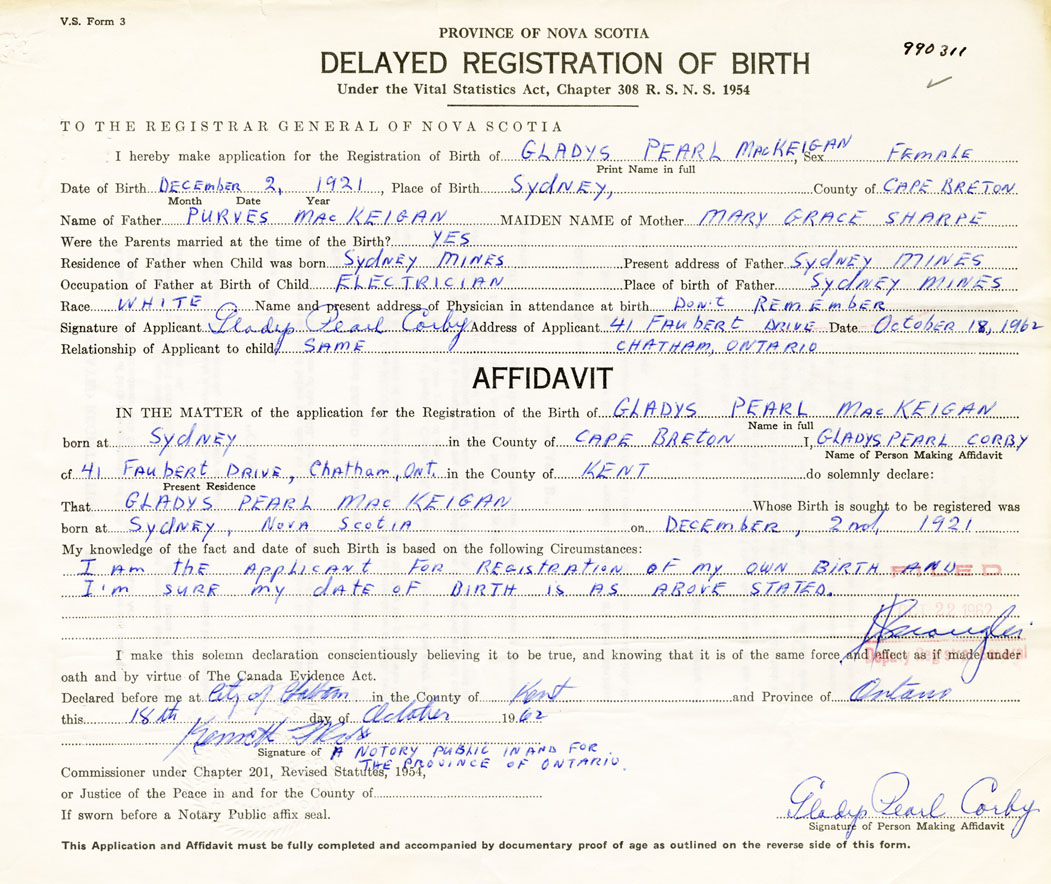 V.S. Form 3
PROVINCE OF NOVA SCOTIA
990311
DELAYED REGISTRATION OF BIRTH
Under the Vital Statistics Act, Chapter 308 R. S. N. S. 1954
TO THE REGISTRAR GENERAL OF NOVA SCOTIA
I hereby make application for the Registration of Birth of GLADYS PEARL MacKEIGAN, Sex FEMALE
Print Name in full
Date of Birth DECEMBER 2, 1921, Place of Birth Sydney, County of CAPE BRETON
Month Date Year
Name of Father PURVES MacKEIGAN MAIDEN NAME of Mother MARY GRACE SHARPE
Were the Parents married at the time of the Birth? YES
Residence of Father when Child was born Sydney MINES Present address of Father Sydney MINES
Occupation of Father at Birth of Child ELECTRICIAN Place of birth of Father Sydney MINES
Race WHITE Name and present address of Physician in attendance at birth DON'T REMEMBER
Signature of Applicant Gladys Pearl Corby Address of Applicant 41 FAUBERT DRIVE Date October 18, 1962
Relationship of Applicant to child SAME CHATHAM, ONTARIO
AFFIDAVIT
IN THE MATTER of the application for the Registration of the Birth of GLADYS PEARL MacKEIGAN
Name in full
born at Sydney in the County of CAPE BRETON I, GLADYS PEARL CORBY
Name of Person Making Affidavit
of 41 FAUBERT DRIVE, Chatham, Ont. in the County of KENT do solemnly declare:
Present Residence
That GLADYS PEARL MacKEIGAN Whose Birth is sought to be registered was
born at Sydney, Nova Scotia on DECEMBER, 2nd, 1921
My knowledge of the fact and date of such Birth is based on the following Circumstances:
I AM the APPLICANT FOR REGISTRATION OF my OWN BIRTH AND
I'm SURE my dATE OF BIRTH IS AS ABOVE STATED.
FILED
22 1962
Deputy Registrar General
I make this solemn declaration conscientiously believing it to be true, and knowing that it is of the same force and effect as if made under
oath and by virtue of The Canada Evidence Act.
Declared before me at City of Chatham in the County of Kent and Province of Ontario
this 18th day of October 1962
Kenneth
Signature of A NOTORY PUBLIC IN AND FOR
THE PROVINCE OF ONTARIO.
Commissioner under Chapter 201, Revised Statutes, 1954,
or Justice of the Peace in and for the County of
If sworn before a Notary Public affix seal.
Gladys Pearl Corby
Signature of Person Making Affidavit
This Application and Affidavit must be fully completed and accompanied by documentary proof of age as outlined on the reverse side of this form.